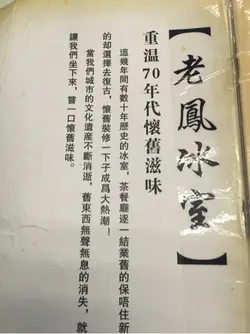 【老鳳冰室】
重温70年代懷舊滋味
這幾年間有數十年歷史的冰室，茶餐廳逐一結業舊的保唔住新
的却選擇去復古，懷舊裝修一下子成爲大熱潮！
當我們城市的文化遺產不斷消逝，舊東西無聲無息的消失，就
讓我們坐下來，嘗一口懷舊滋味。